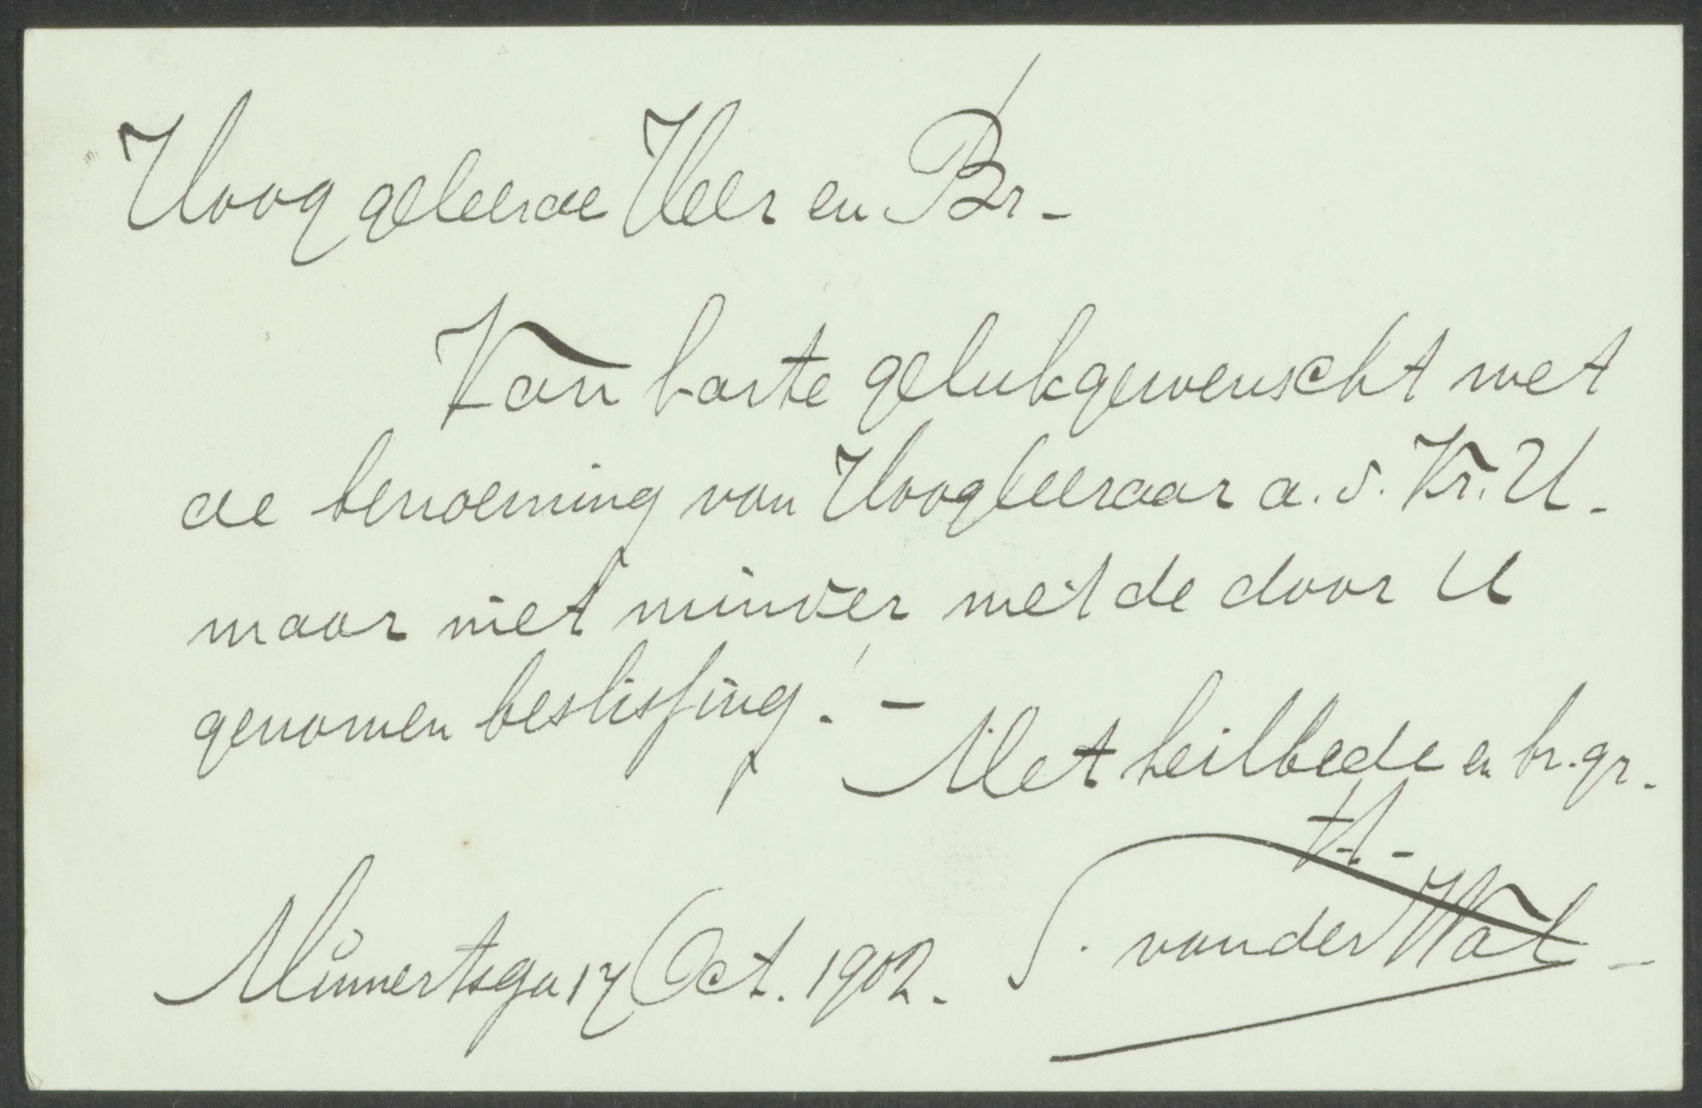 Hooggeleerde Heer en Br -
Van harte gelukgewenscht met
de benoeming van Hoogleeraar a. d. Vr. U.
maar niet minder met de door U
genomen beslissing! -
Met heilbede en br. gr.
S. van der Wal -
Minnertsga 17 Oct. 1902.